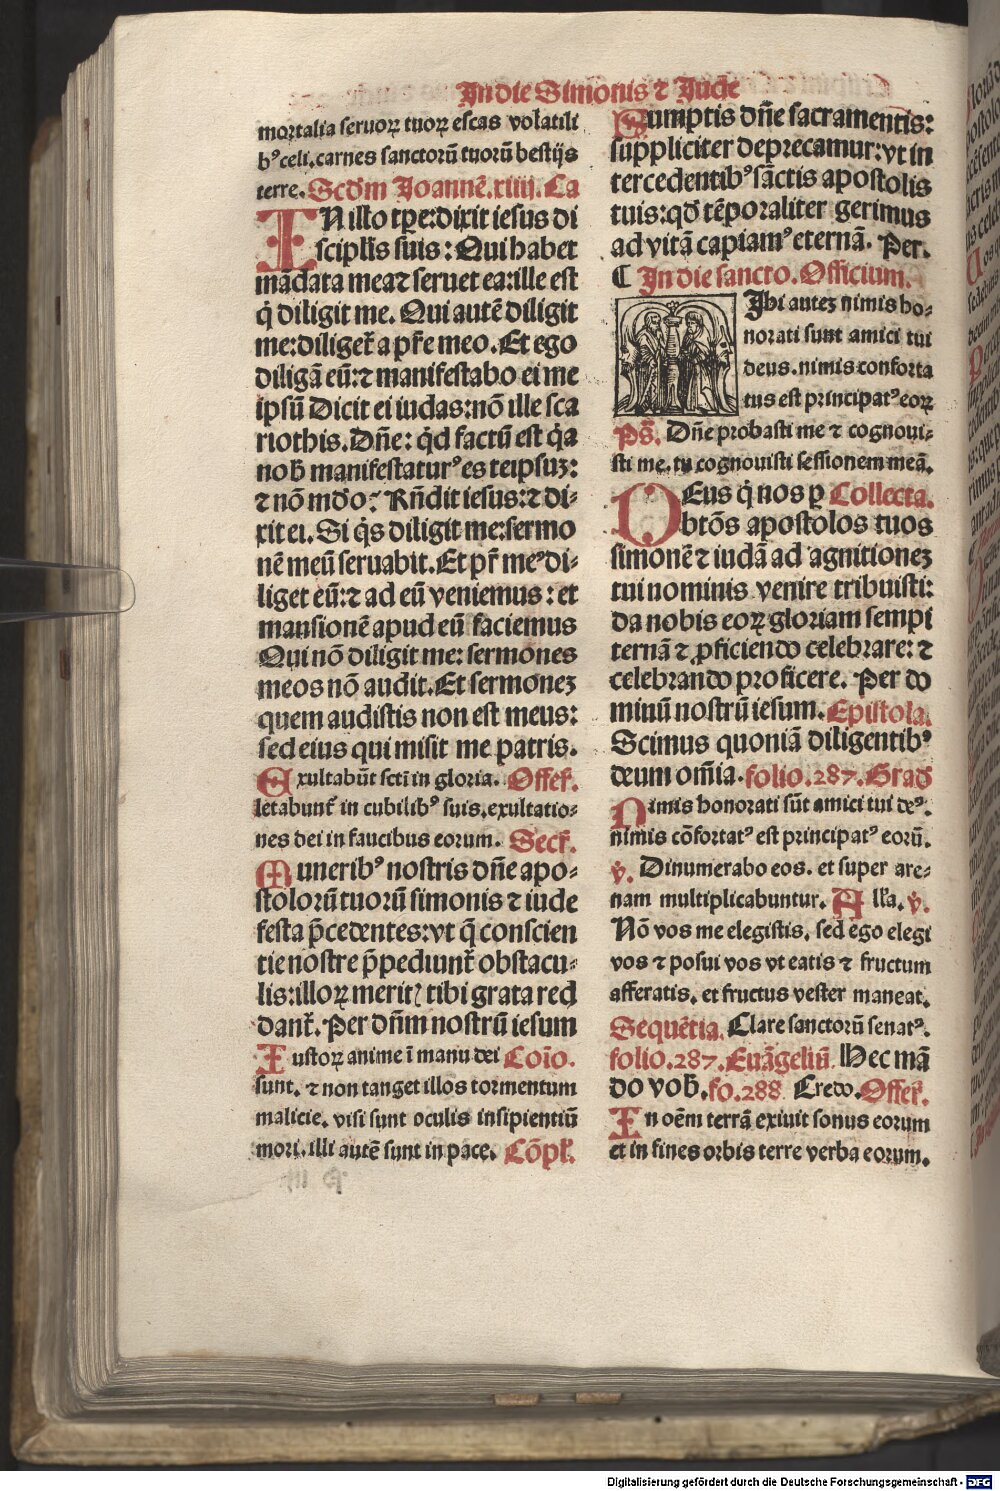 In die Simonis ⁊ Jude
mortalia seruoꝝ tuoꝝ escas volatili
bꝰ celi.carnes sanctorū tuorū bestijs
terre. Scd̄m Joannē.xiiii. Ca
IN illo tꝑe:dixit iesus di
scipl̄is suis: Qui habet
mādata mea⁊ seruet ea:ille est
q̇ diligit me. Qui autē diligit
me:diliget᷑ a pr̄e meo. Et ego
diligā eū:⁊ manifestabo ei me
ipsū Dicit ei iudas:nō ille sca
riothis. Dn̄e: q̇d factū est q̇a
nob̄ manifestatur᷒ es teipsuꝫ:
⁊ nō mdo? Rn̄dit iesus:⁊ di-
xit ei. Si q̇s diligit me:sermo
nē meū seruabit. Et pr̄ meꝰ di-
liget eū:⁊ ad eū veniemus: et
mansionē apud eū faciemus
Qui nō diligit me: sermones
meos nō audit. Et sermoneꝫ
quem audistis non est meus:
sed eius qui misit me patris.
Exultabūt scti in gloria. Offer̄.
letabunt᷑ in cubilibꝰ suis.exultatio-
nes dei in faucibus eorum. Secr̄.
Muneribꝰ nostris dn̄e apo-
stolorū tuorū simonis ⁊ iude
festa p̄cedentes:vt q̄ conscien
tie nostre p̄pediunt᷑ obstacu-
lis:illoꝝ merit tibi grata red
dant᷑. Per dn̄m nostrū iesum
Iustoꝝ anime ī manu dei Coīo.
sunt. ⁊ non tanget illos tormentum
malicie. visi sunt oculis insipientiū
mori. illi autē sunt in pace. Cōpl̄.
Sumptis dn̄e sacramentis:
suppliciter deprecamur:vt in
tercedentibꝰ sāctis apostolis
tuis:qd̄ tēporaliter gerimus
ad vitā capiamꝰ eternā. Per.
C In die sancto. Officium.
Ihi auteꝫ nimis ho-
norati sunt amici tui
deus. nimis conforta
tus est principatꝰ eoꝝ
Ps̄. Dn̄e probasti me ⁊ cognoui-
sti me. tu cognouisti sessionem meā.
DEus q̇ nos ꝑ Collecta.
btōs apostolos tuos
simonē ⁊ iudā ad agnitioneꝫ
tui nominis venire tribuisti:
da nobis eoꝝ gloriam sempi
ternā ⁊ ꝓficiendo celebrare: ⁊
celebrando proficere. Per do
minū nostrū iesum. Epistola.
Scimus quoniā diligentibꝰ
deum om̄ia. folio.287. Grad̄
Nimis honorati sūt amici tui deꝰ.
nimis cōfortatꝰ est principatꝰ eorū.
v̇. Dinumerabo eos. et super are-
nam multiplicabuntur. All̄a. v̇.
Nō vos me elegistis. sed ego elegi
vos ⁊ posui vos vt eatis ⁊ fructum
afferatis. et fructus vester maneat.
Sequētia. Clare sanctorū senatꝰ.
folio.287. Euāgeliū. Hec mā
do vob̄. fo.288 Credo. Offer̄.
In oēm terrā exiuit sonus eorum
et in fines orbis terre verba eorum.
Digitalisierung gefördert durch die Deutsche Forschungsgemeinschaft - DFG